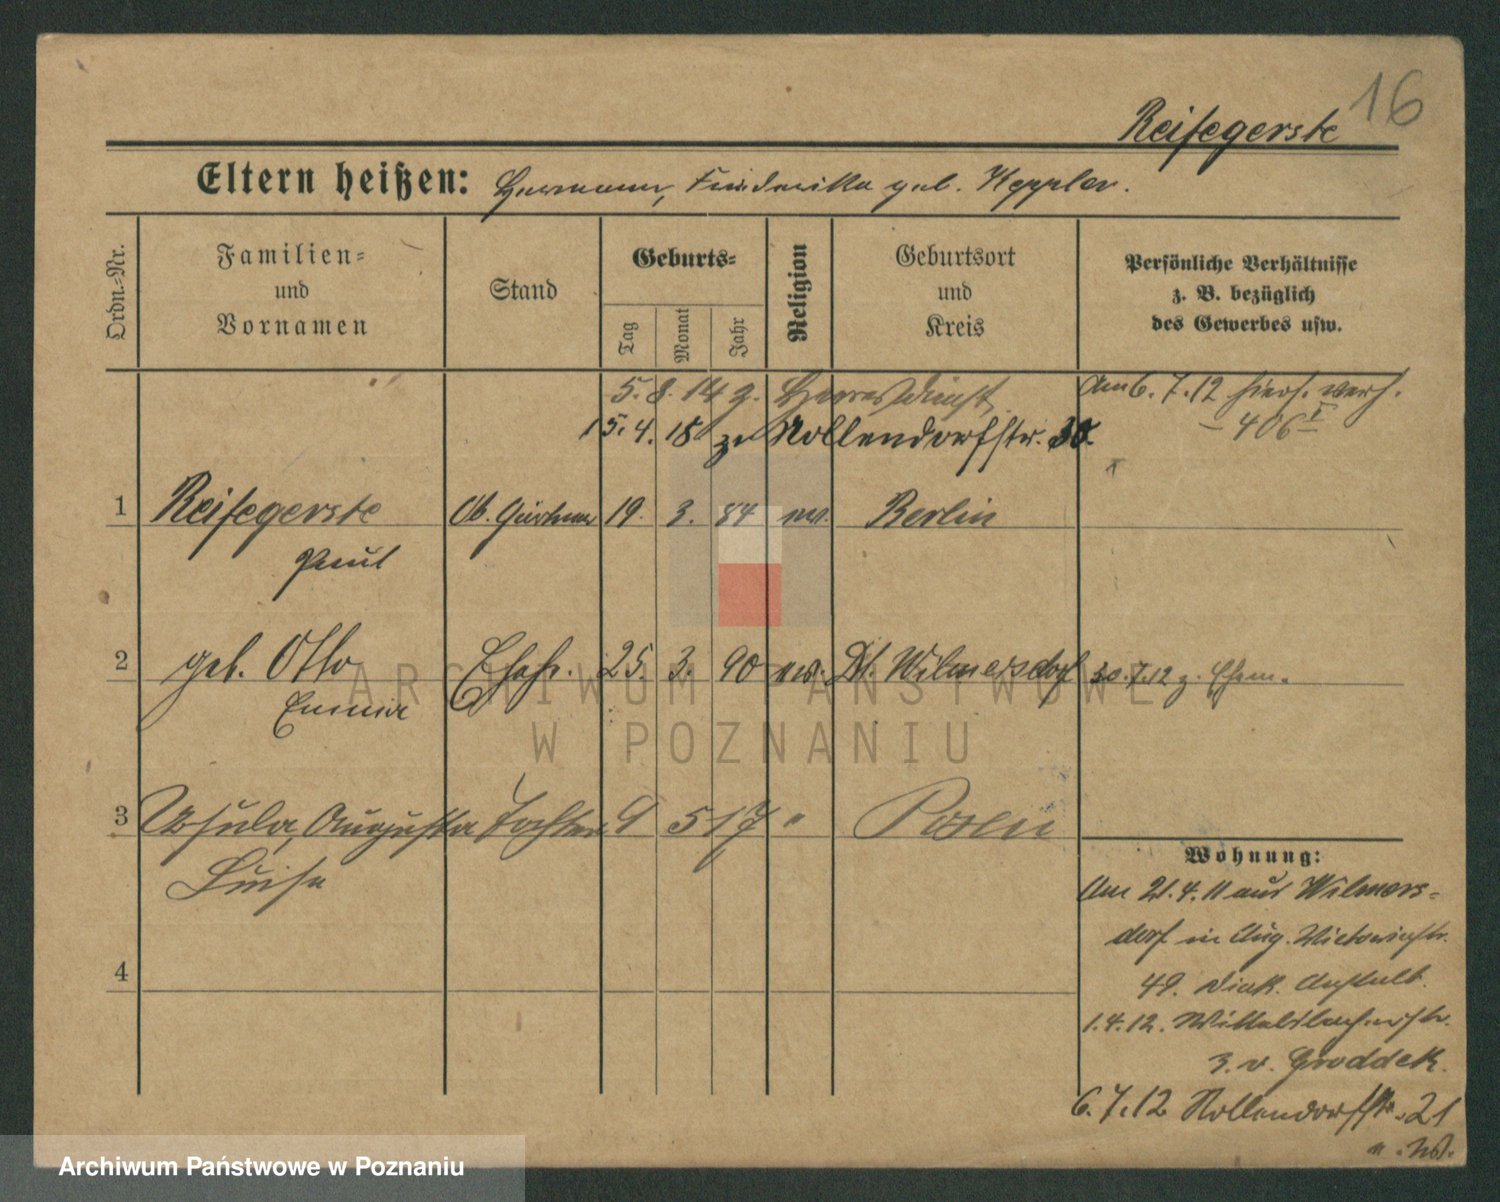 16
Reisegerste
Eltern heißen: Hermann, Friederika geb. Keppler.
Ordn.-Nr.
Familien-
und
Vornamen
Stand
Geburts-
Tag
Monat
Jahr
Religion
Geburtsort
und
Kreis
Persönliche Verhältnisse
z. B. bezüglich
des Gewerbes usw.
5. 8. 14 z. Heeresdienst
15. 4. 18 zu Nollendorfstr. 38.
Am 6. 7. 12 hiers. verh.
- 406 I -
1 Reisegerste Ob. Gärtner 19. 3. 84 ev. Berlin
Paul
2 geb. Otto Ehefr. 25. 3. 90 ev. Dt. Wilmersdorf 30. 7. 12 z. Ehem.
Emma
3 Ursula, Augusta Tochter 9 5 17 " Posen
Luise
4
Wohnung:
Am 21. 4. 11 aus Wilmers-
dorf in Aug. Victoriastr.
49. Diak. Anstalt.
1. 4. 12. Wittelsbacherstr.
3. v. Groddek.
6. 7. 12 Nollendorfstr. 21
ARCHIWUM PAŃSTWOWE
W POZNANIU
Archiwum Państwowe w Poznaniu